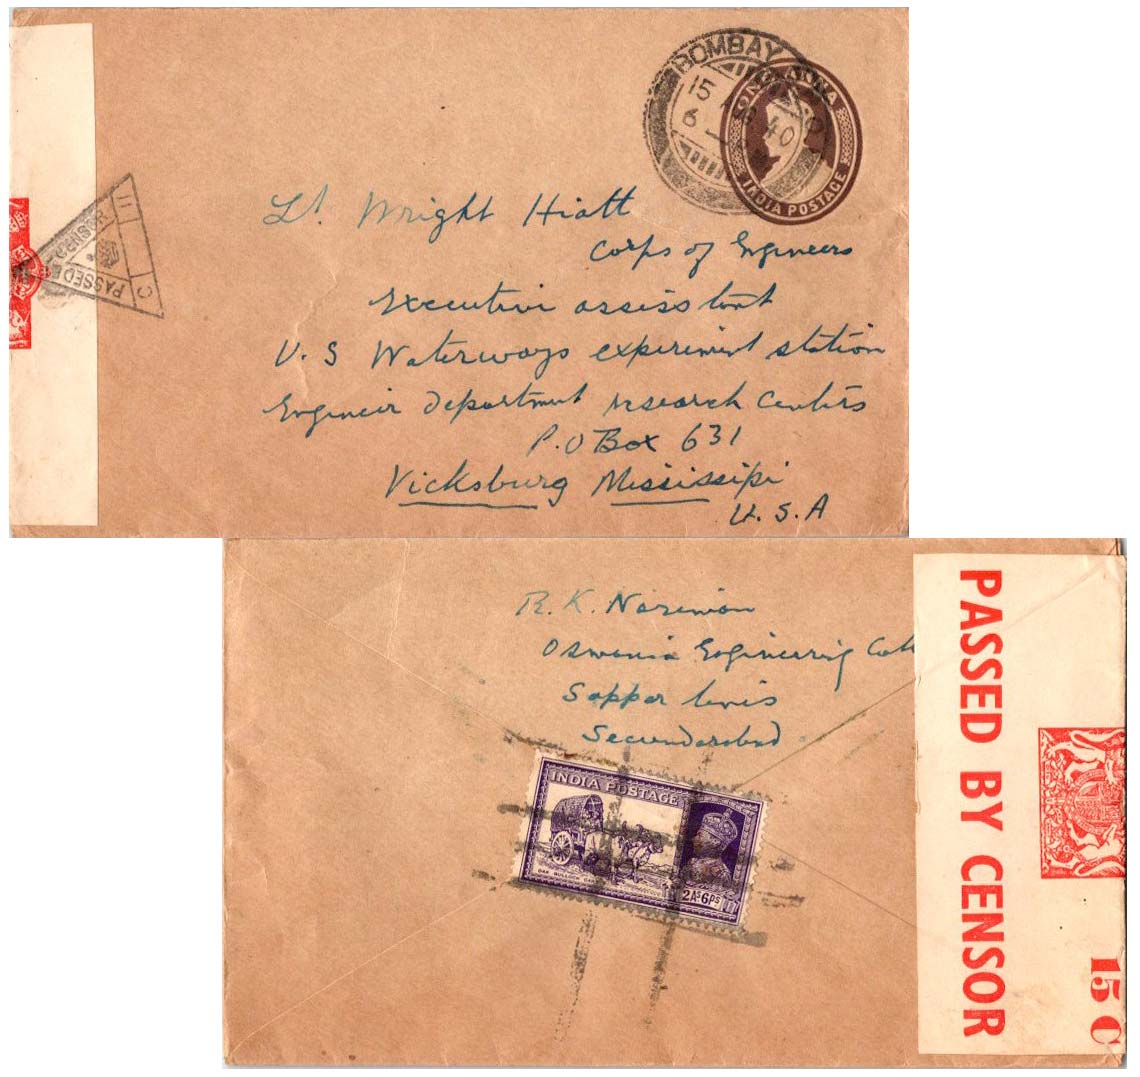 BOMBAY
15
6 40
ONE ANNA
INDIA POSTAGE
PASSED
CENSOR
II
C
Lt. Wright Hiatt
Corps of Engineers
Executive assisstant
U.S Waterways experiment station
Engineer department research Centers
P.O Box 631
Vicksburg Mississipi
U.S.A
R.K. Nariman
Osmania Engineering Coll
Sapper lines
Secunderabad
INDIA POSTAGE
DAK BULLOCK CART
2As6ps
PASSED BY CENSOR
15 C